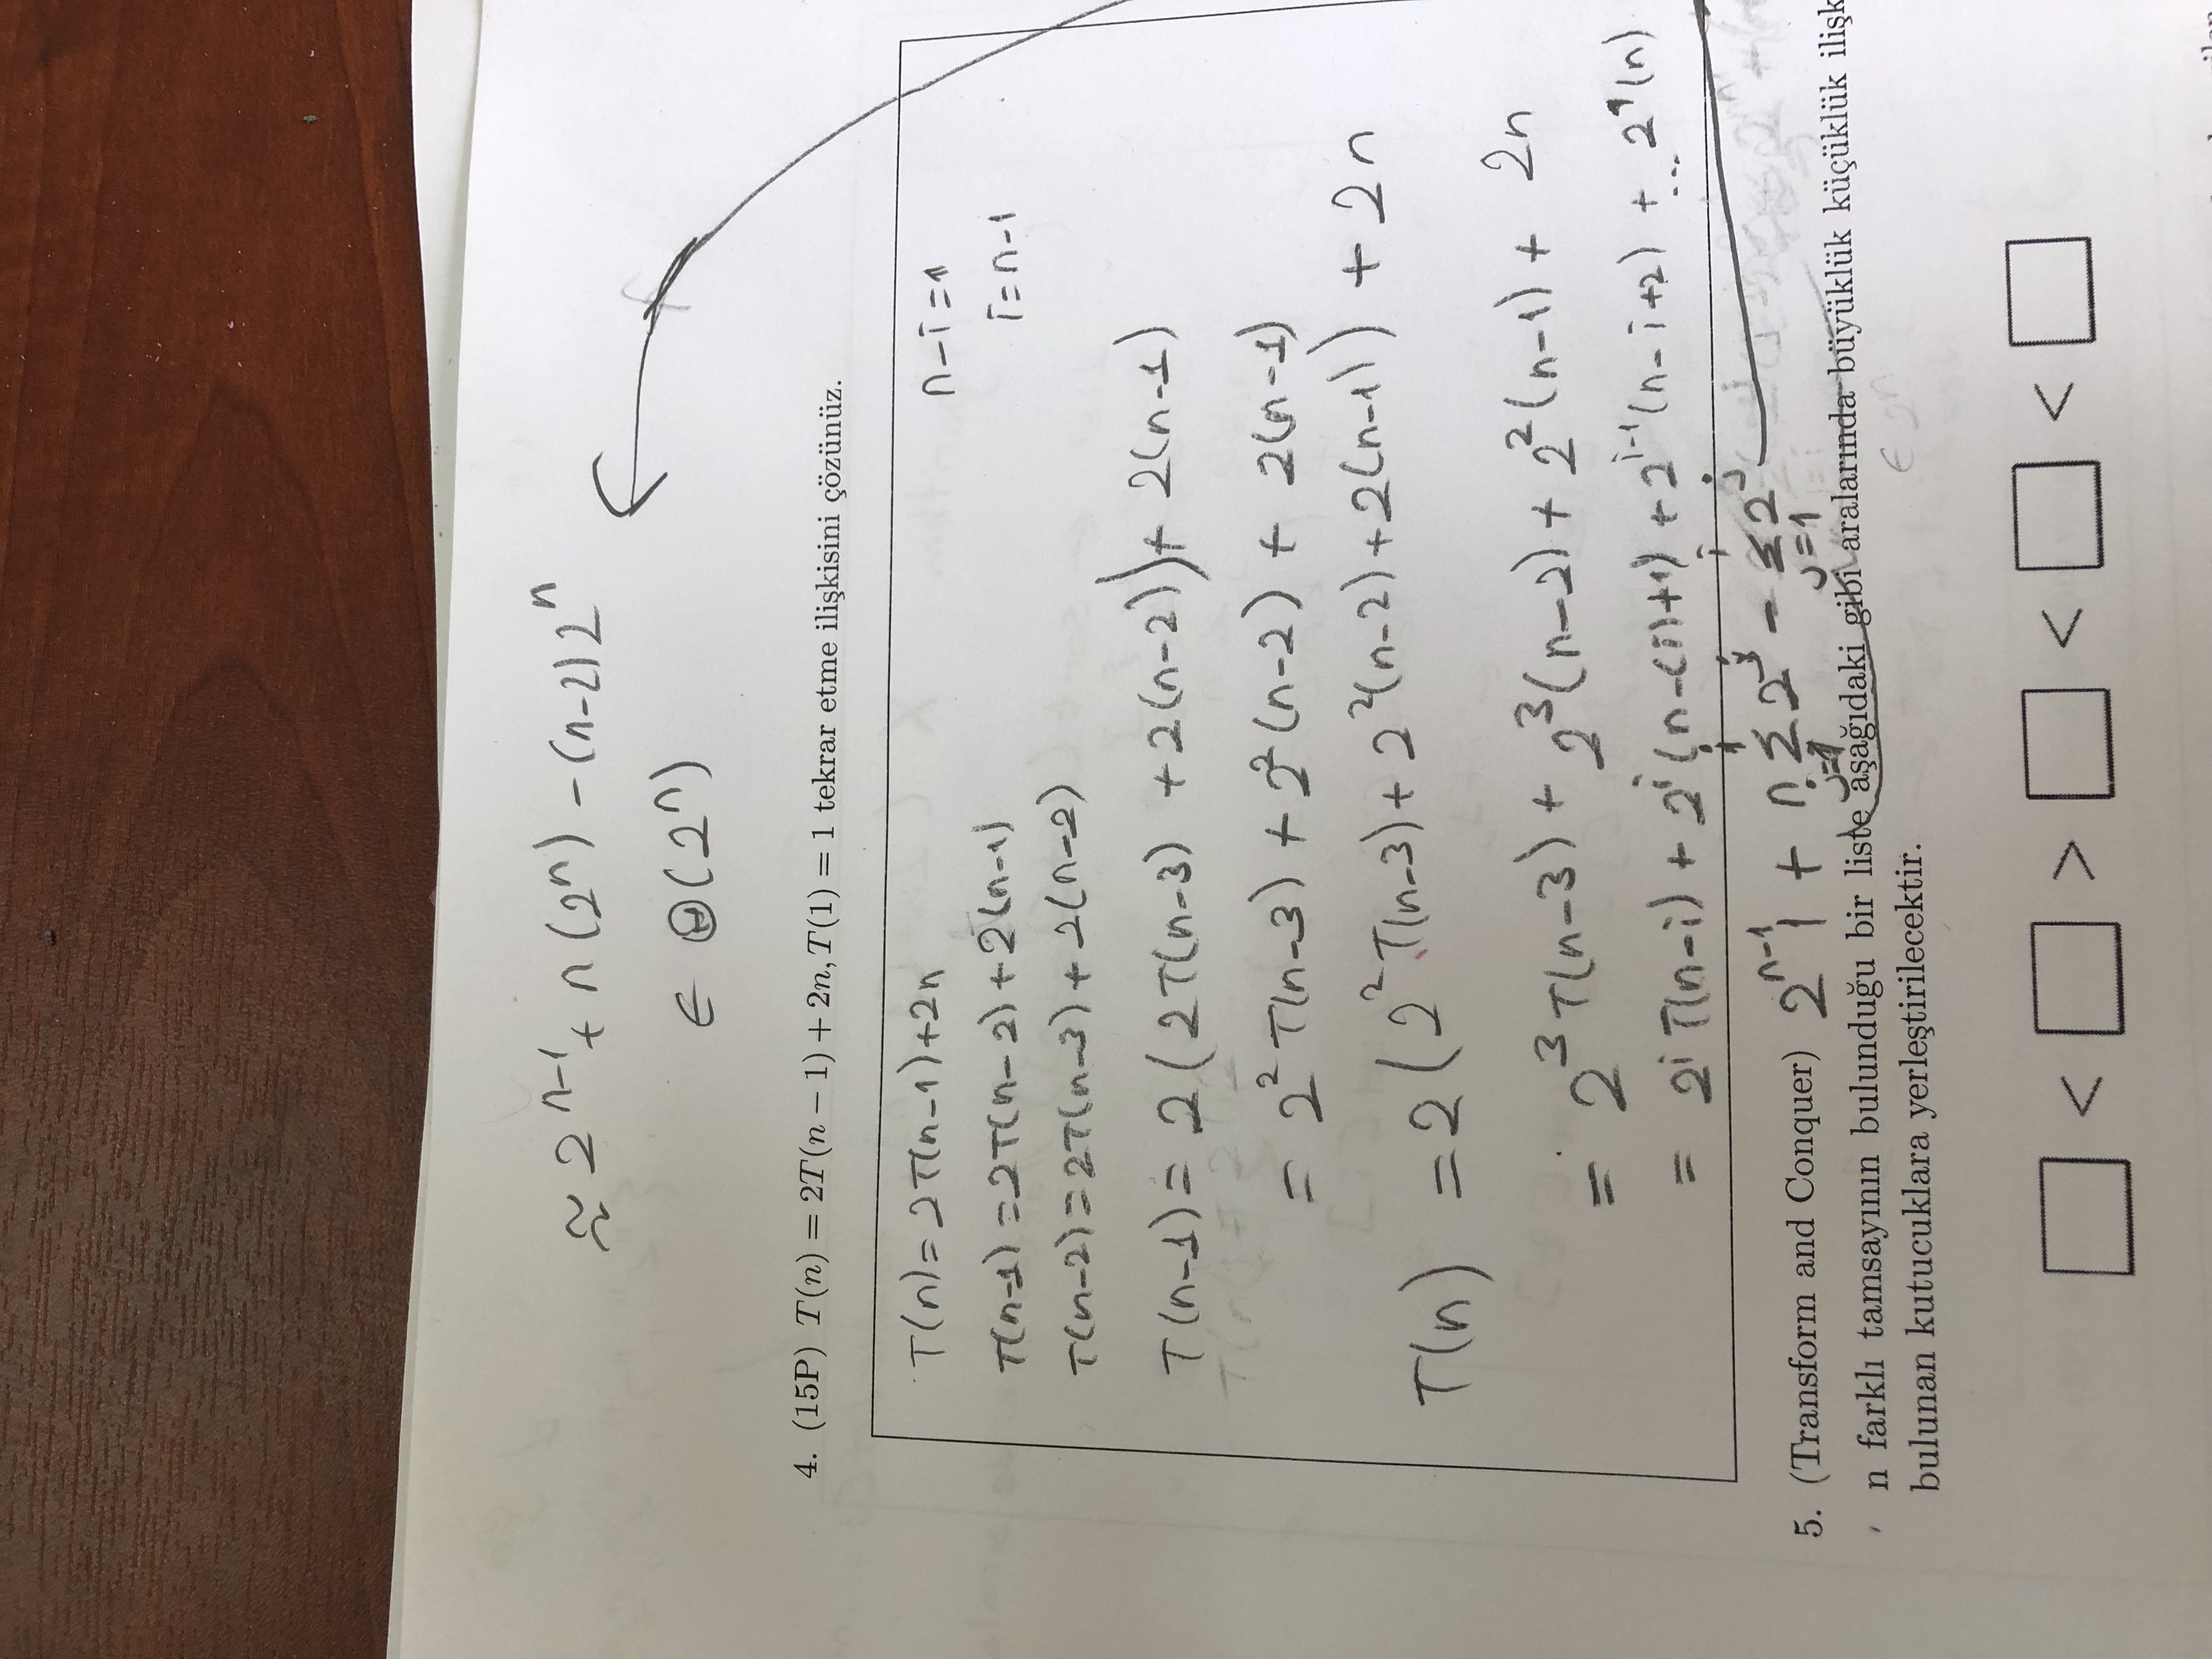 ≈ 2^{n-1} + n(2^n) - (n-2)2^n
∈ Θ(2^n)
4. (15P) T(n) = 2T(n − 1) + 2n, T(1) = 1 tekrar etme ilişkisini çözünüz.
T(n)=2T(n-1)+2n
n-i=1
T(n-1)=2T(n-2)+2(n-1)
i=n-1
T(n-2)=2T(n-3)+2(n-2)
T(n-1)= 2(2T(n-3) +2(n-2))+ 2(n-1)
= 2^2 T(n-3) + 2^2(n-2) + 2(n-1)
T(n) =2(2^2 T(n-3)+ 2^2(n-2)+2(n-1)) + 2n
= 2^3 T(n-3) + 2^3(n-2) + 2^2(n-1) + 2n
= 2^i T(n-i) + 2^i(n-(i)+1) + 2^{i-1}(n-i+2) + ... 2^1(n)
5. (Transform and Conquer) 2^{n-1} 1 + n Σ_{j=1}^{i} 2^j - Σ_{j=1}^{i} 2^j
n farklı tamsayının bulunduğu bir liste aşağıdaki gibi aralarında büyüklük küçüklük ilişk
bulunan kutucuklara yerleştirilecektir.
∈ 2^n
□ < □ > □ < □ < □